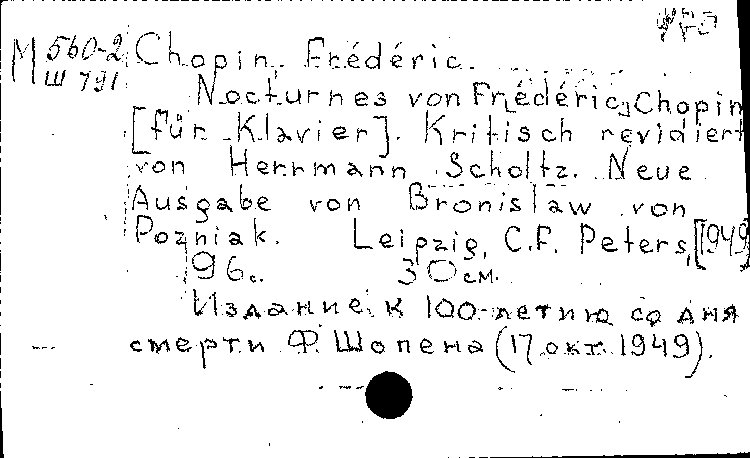 М 560-2
Ш 791
Chopin, Frédéric.
Nocturnes von Frédéric Chopin
[für Klavier]. Kritisch revidiert
von Herrmann Scholtz. Neue
Ausgabe von Bronislaw von
Pozniak. Leipzig, C.F. Peters, [1949]
96 с. 30 см.
Издание к 100-летию со дня
смерти Ф. Шопена (17 окт. 1949).